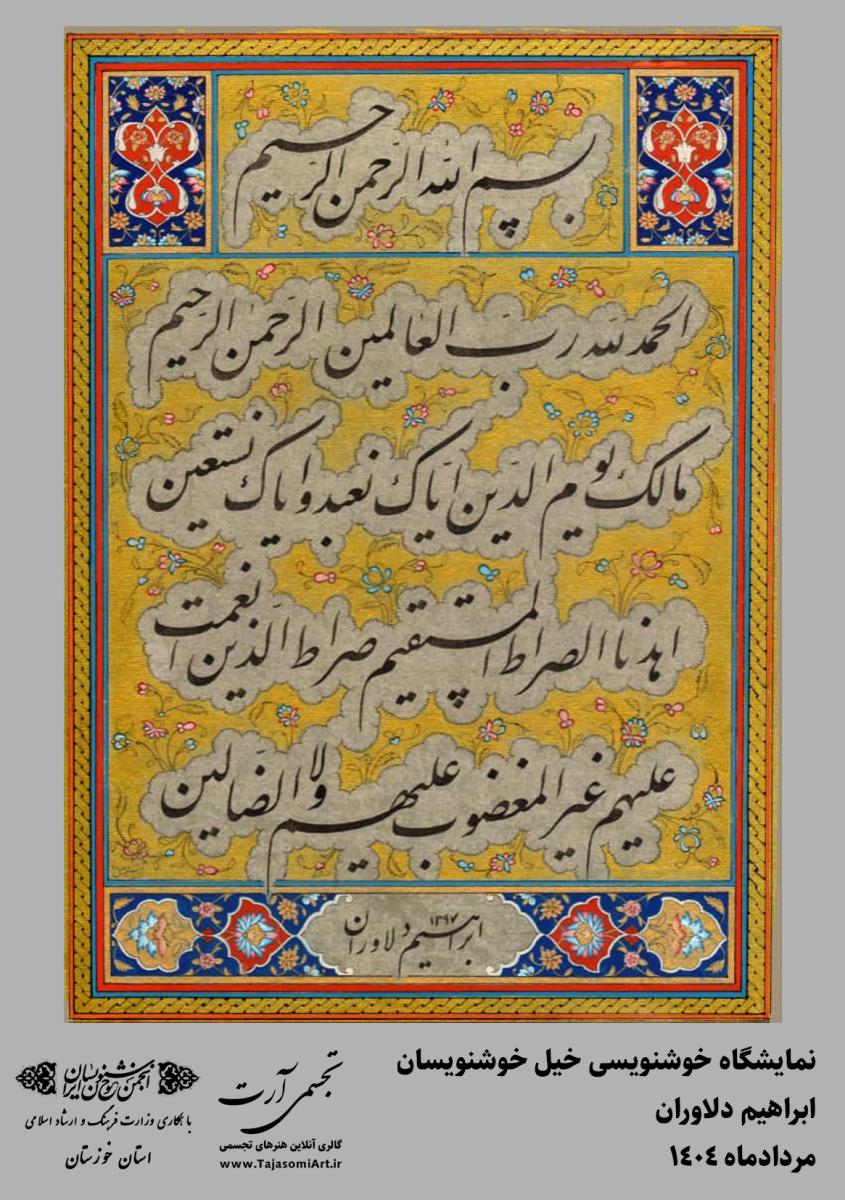 بسم الله الرحمن الرحیم
الحمد لله ربّ العالمین الرحمن الرحیم
مالک یوم الدّین ایّاک نعبد و ایاک نستعین
اهدنا الصراط المستقیم صراط الّذین انعمت
علیهم غیر المغضوب علیهم ولا الضالین
ابراهیم دلاوران ۱۳۹۷
نمایشگاه خوشنویسی خیل خوشنویسان
ابراهیم دلاوران
مردادماه ۱۴۰۴
تجسمی آرت
گالری آنلاین هنرهای تجسمی
www.TajasomiArt.ir
انجمن خوشنویسان ایران
با همکاری وزارت فرهنگ و ارشاد اسلامی
استان خوزستان